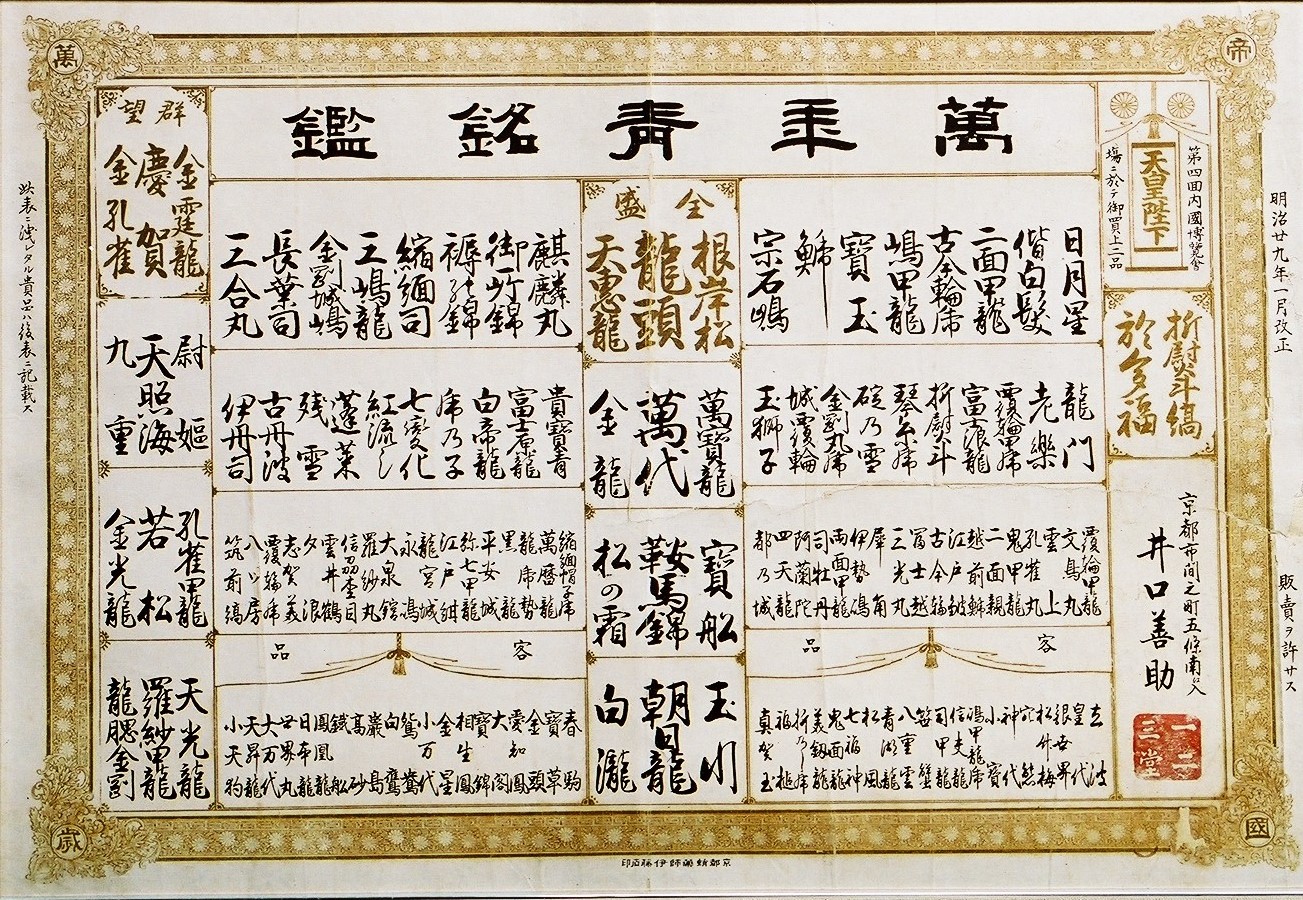 萬年青銘鑑
帝
國
萬
歳
明治廿九年一月改正
販賣ヲ許サス
第四回内國博覽會
天皇陛下
場ニ於テ御買上ニ品
折熨斗縞
於多福
京都市間之町五條南入
井口善助
一二
三堂
日月星
偕白髪
二面甲龍
古今輪席
嶋甲龍
寶玉
鮄
宗石鴫
龍門
老樂
覆輪甲席
富士浪龍
折熨斗
琴糸席
碇乃雪
金剛丸席
城覆輪
玉獅子
覆輪甲龍
文鳥丸
雲上
孔雀丸
鬼甲龍
二面親
越前鮮
江戸皷
古今輪
冨士越
三光丸
犀角
伊勢嶋
両面甲龍
司牡丹
阿蘭陀
四天龍
都乃城
客品
立波
皇代
銀世界
松井梅
神代
小寶
信夫龍
司甲龍
笹蟹
八重雲
青湖龍
松風
七福神
鬼面龍
美釼龍
折乃席
福槌
真賀玉
全盛
根岸松
龍頭
天惠龍
萬寶龍
萬代
金龍
寶船
鞍馬錦
松の霜
玉川
朝日龍
白瀧
麒麟丸
御所錦
褥錦
縮緬司
三嶋龍
金剛城嶋
長葉司
三合丸
貴寶青
富士原龍
白帝龍
席乃子
七變化
紅流し
蓬莱
残雪
古丹波
伊丹司
縮緬帽子席
萬暦龍
龍席勢
黒龍
平安城
弥七甲龍
江戸紺
龍宮城
永馮
大泉舘
羅紗丸
信孕杢目
雲井鶴
夕浪
志賀美
覆輪席
八ツ房
筑前縞
客品
春駒
寶草
金頭
愛知龍
大閤
寶錦
相生鳳
金星
小万代
鴛鴦
白鷹
巌島
高砂
鐵船
鳳凰龍
日本龍
世界丸
大万代
天昇龍
小天狗
群望
金霆龍
慶賀
金孔雀
尉姫
天照海
九重
孔雀甲龍
若松
金光龍
天光龍
羅紗甲龍
龍腮金剛
此表ニ洩レタル貴品ハ後表ニ記載ス